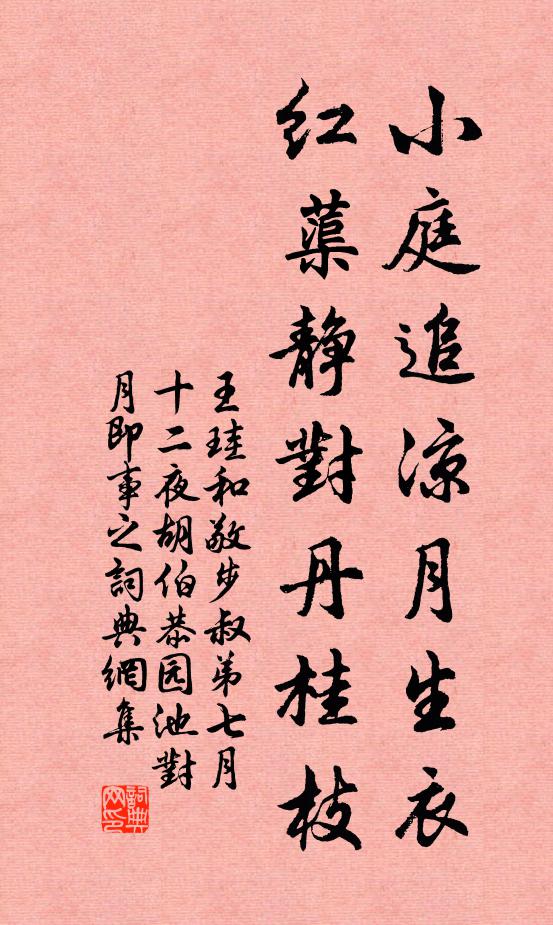 小庭追凉月生衣
红蕖静對丹桂枝
王珪和敬步叔弟七月
十二夜胡伯恭园池對
月即事之詞典網集
詞典網印